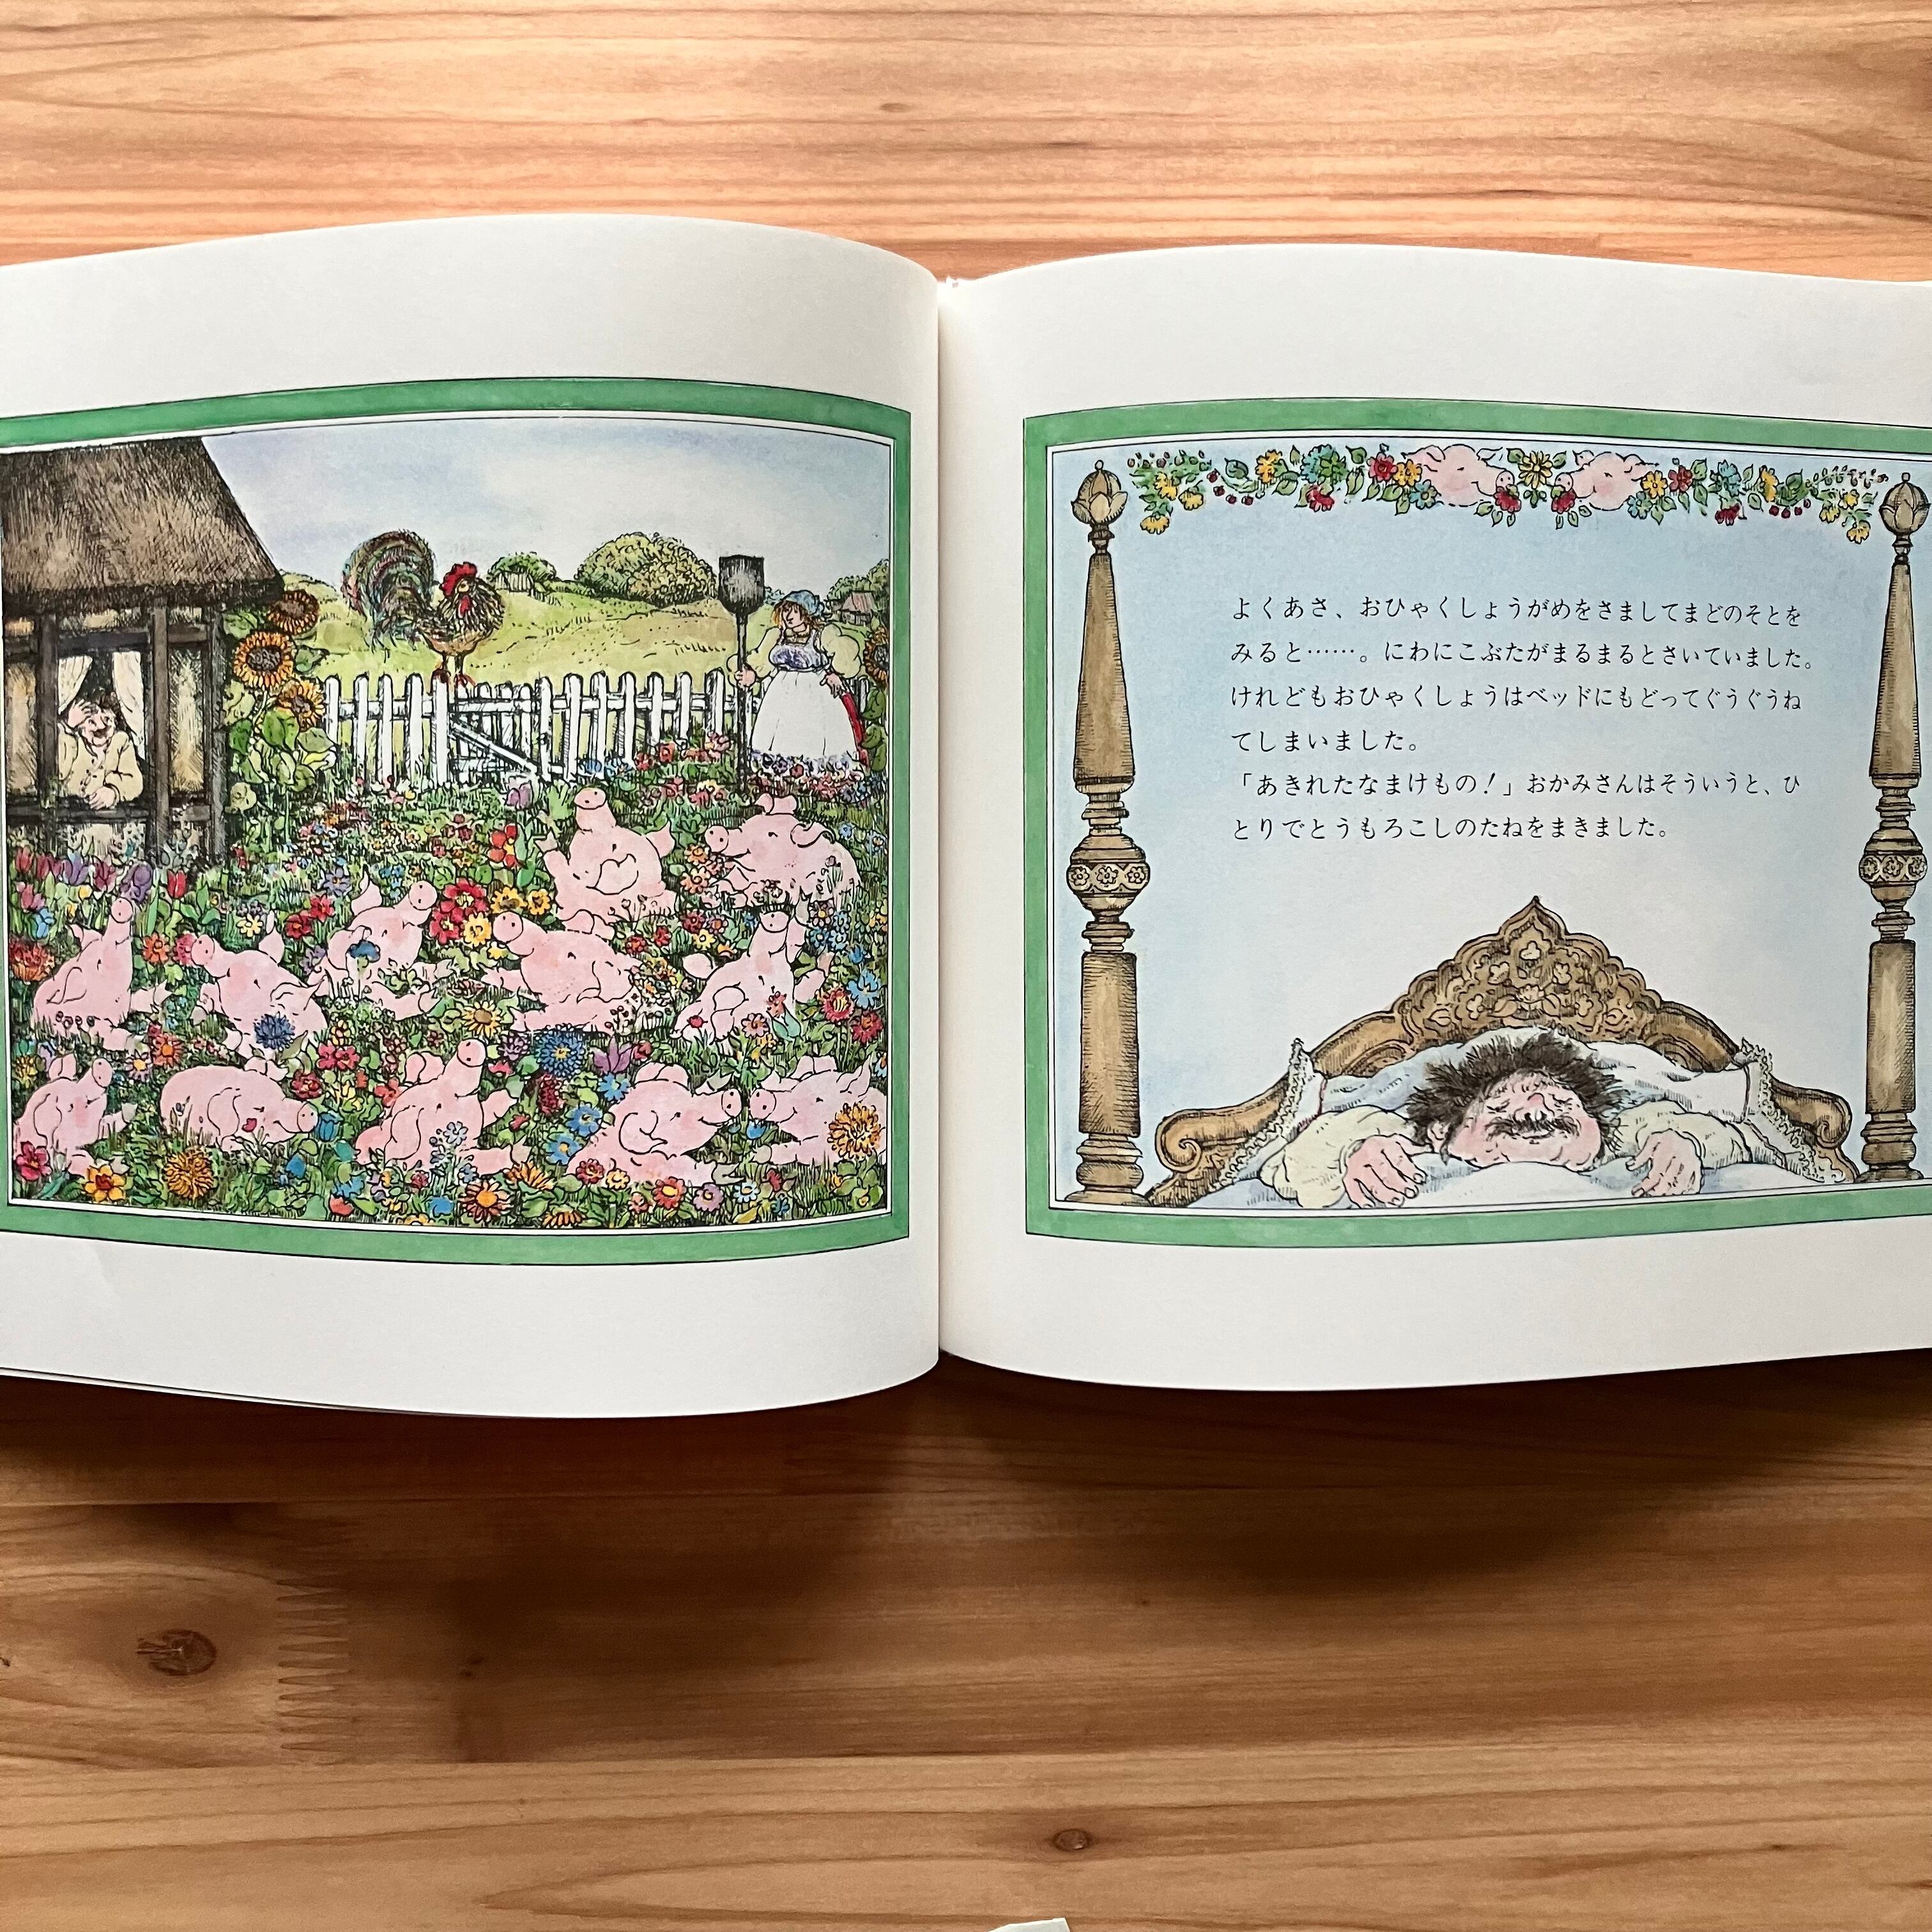 よくあさ、おひゃくしょうがめをさましてまどのそとを
みると……。にわにこぶたがまるまるとさいていました。
けれどもおひゃくしょうはベッドにもどってぐうぐうね
てしまいました。
「あきれたなまけもの！」おかみさんはそういうと、ひ
とりでとうもろこしのたねをまきました。